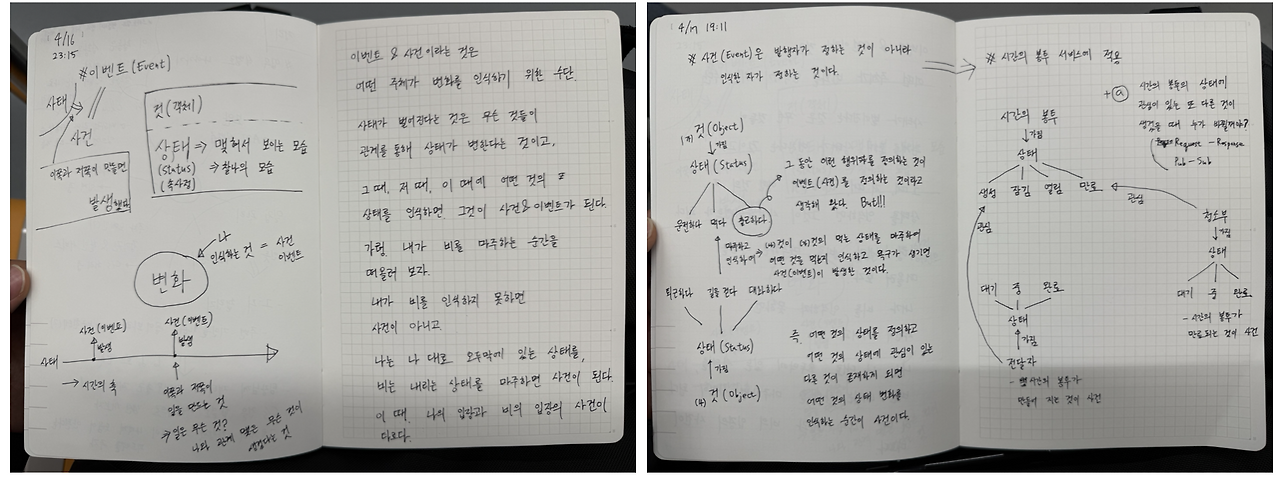 4/16
23:15
※이벤트(Event)
사태
사건
이쪽과 저쪽이 만들면
발생했다
것(객체)
상태 ⇒ 맺혀서 보이는 모습
(status) ⇒ 찰나의 모습
나
인식하는 것 = 사건
이벤트
변화
사건(이벤트) 사건(이벤트)
발생 발생
상태
→ 시간의 축
이쪽과 저쪽이
일을 만드는 것
⇒ 일은 무슨 것?
나와 관계 맺는 무슨 것이
생겼다는 것
이벤트 & 사건이라는 것은
어떤 주체가 변화를 인식하기 위한 수단.
사태가 벌어진다는 것은 무슨 것들이
관계를 통해 상태가 변한다는 것이고,
그 때, 저 때, 이 때에 어떤 것의
상태를 인식하면 그것이 사건&이벤트가 된다.
가령 내가 비를 마주하는 순간을
떠올려 보자.
내가 비를 인식하지 못하면
사건이 아니고
나는 나 대로 오두막에 있는 상태를,
비는 내리는 상태를 마주하면 사건이 된다.
이 때, 나의 입장과 비의 입장의 사건이
다르다.
4/17 19:11
※ 사건(Event)은 발행자가 정하는 것이 아니라
인식한 자가 정하는 것이다.
것(Object)
가짐
상태(Status)
운전하다 먹다 출근하다
그 동안 이런 행위만을 정의하는 것이
이벤트(사건)를 정의하는 것이라고
생각해 왔다. But!!!
마주하고
인식하여 → (4)것이 (7)것의 먹는 상태를 마주하여
어떤 것을 먹는지 인식하고 욕구가 생기면
사건(이벤트)이 발생한 것이다.
퇴근하다 길을 걷다 대화하다
상태(Status)
가짐
(4) 것(Object)
즉, 어떤 것의 상태를 정의하고
어떤 것의 상태에 관심이 있는
다른 것이 존재하게 되면
어떤 것의 상태 변화를
인식하는 순간이 사건이다.
※ 시간의 봉투 서비스에 적용
시간의 봉투
가짐
상태
생성 잠김 열림 만료
관심
관심
+ⓐ 시간의 봉투의 상태에
관심이 있는 또 다른 것이
생겼을 때 누가 바뀔까?
Request - Response
Pub - Sub
청소부
가짐
상태
대기 중 완료
- 시간의 봉투가
만료되는 것이 사건
대기 중 완료
상태
가짐
전달자
- 시간의 봉투가
만들어 지는 것이 사건